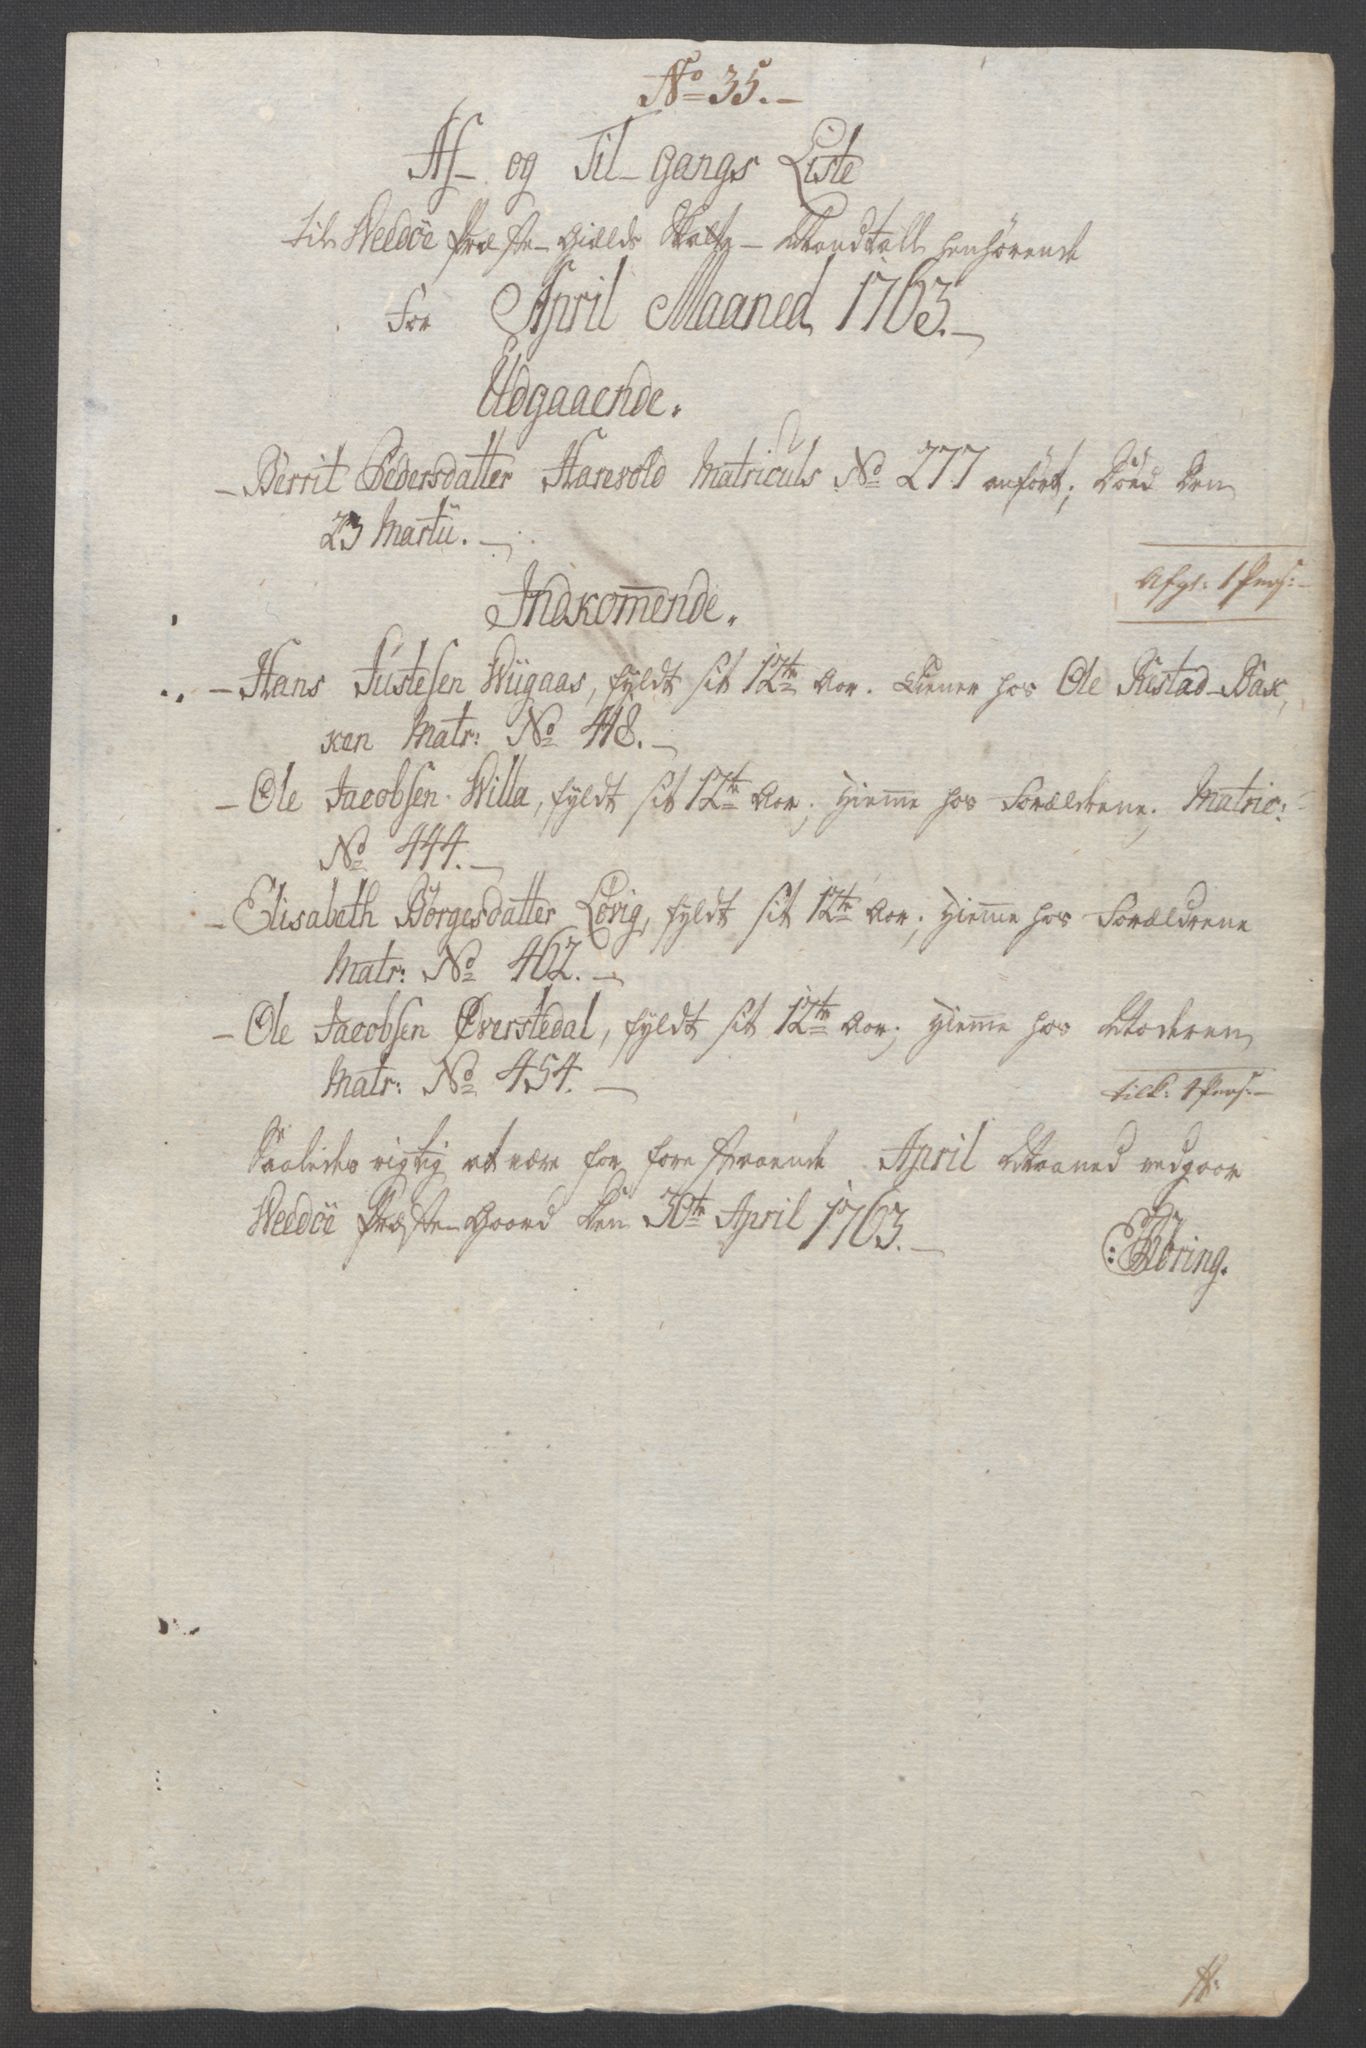 No 35.
Af- og Til-gangs Liste
til Weedöe Præste-Gields Skatte-Mandtall henhörende
for April Maaned 1763.
Udgaaende.
- Berrit Pedersdatter Harevold Matriculs No 277 anfört; döed den
23 Martii.
Afgl: 1 Pers:
Indkom̄ende.
- Hans Justesen Wiigaas, fyldt sit 12te Aar. Tiener hos Ole Ristad-Bax,
xen Matr: No 418.
- Ole Jacobsen Willa, fyldt sit 12te Aar; Hiem̄e hos Forældrene; Matric:
No 444.
- Elisabeth Börgesdatter Lövig, fyldt sit 12te Aar; Hiem̄e hos Forældrene
Matr: No 462.
- Ole Jacobsen Överstedal, fyldt sit 12te Aar; Hiem̄e hos Moderen
Matr: No 454.
tilk: 4 Pers:
Saaledes rigtig at være for forestaaende April Maaned vedgaar
Weedöe Præste-Gaard den 30te April 1763.